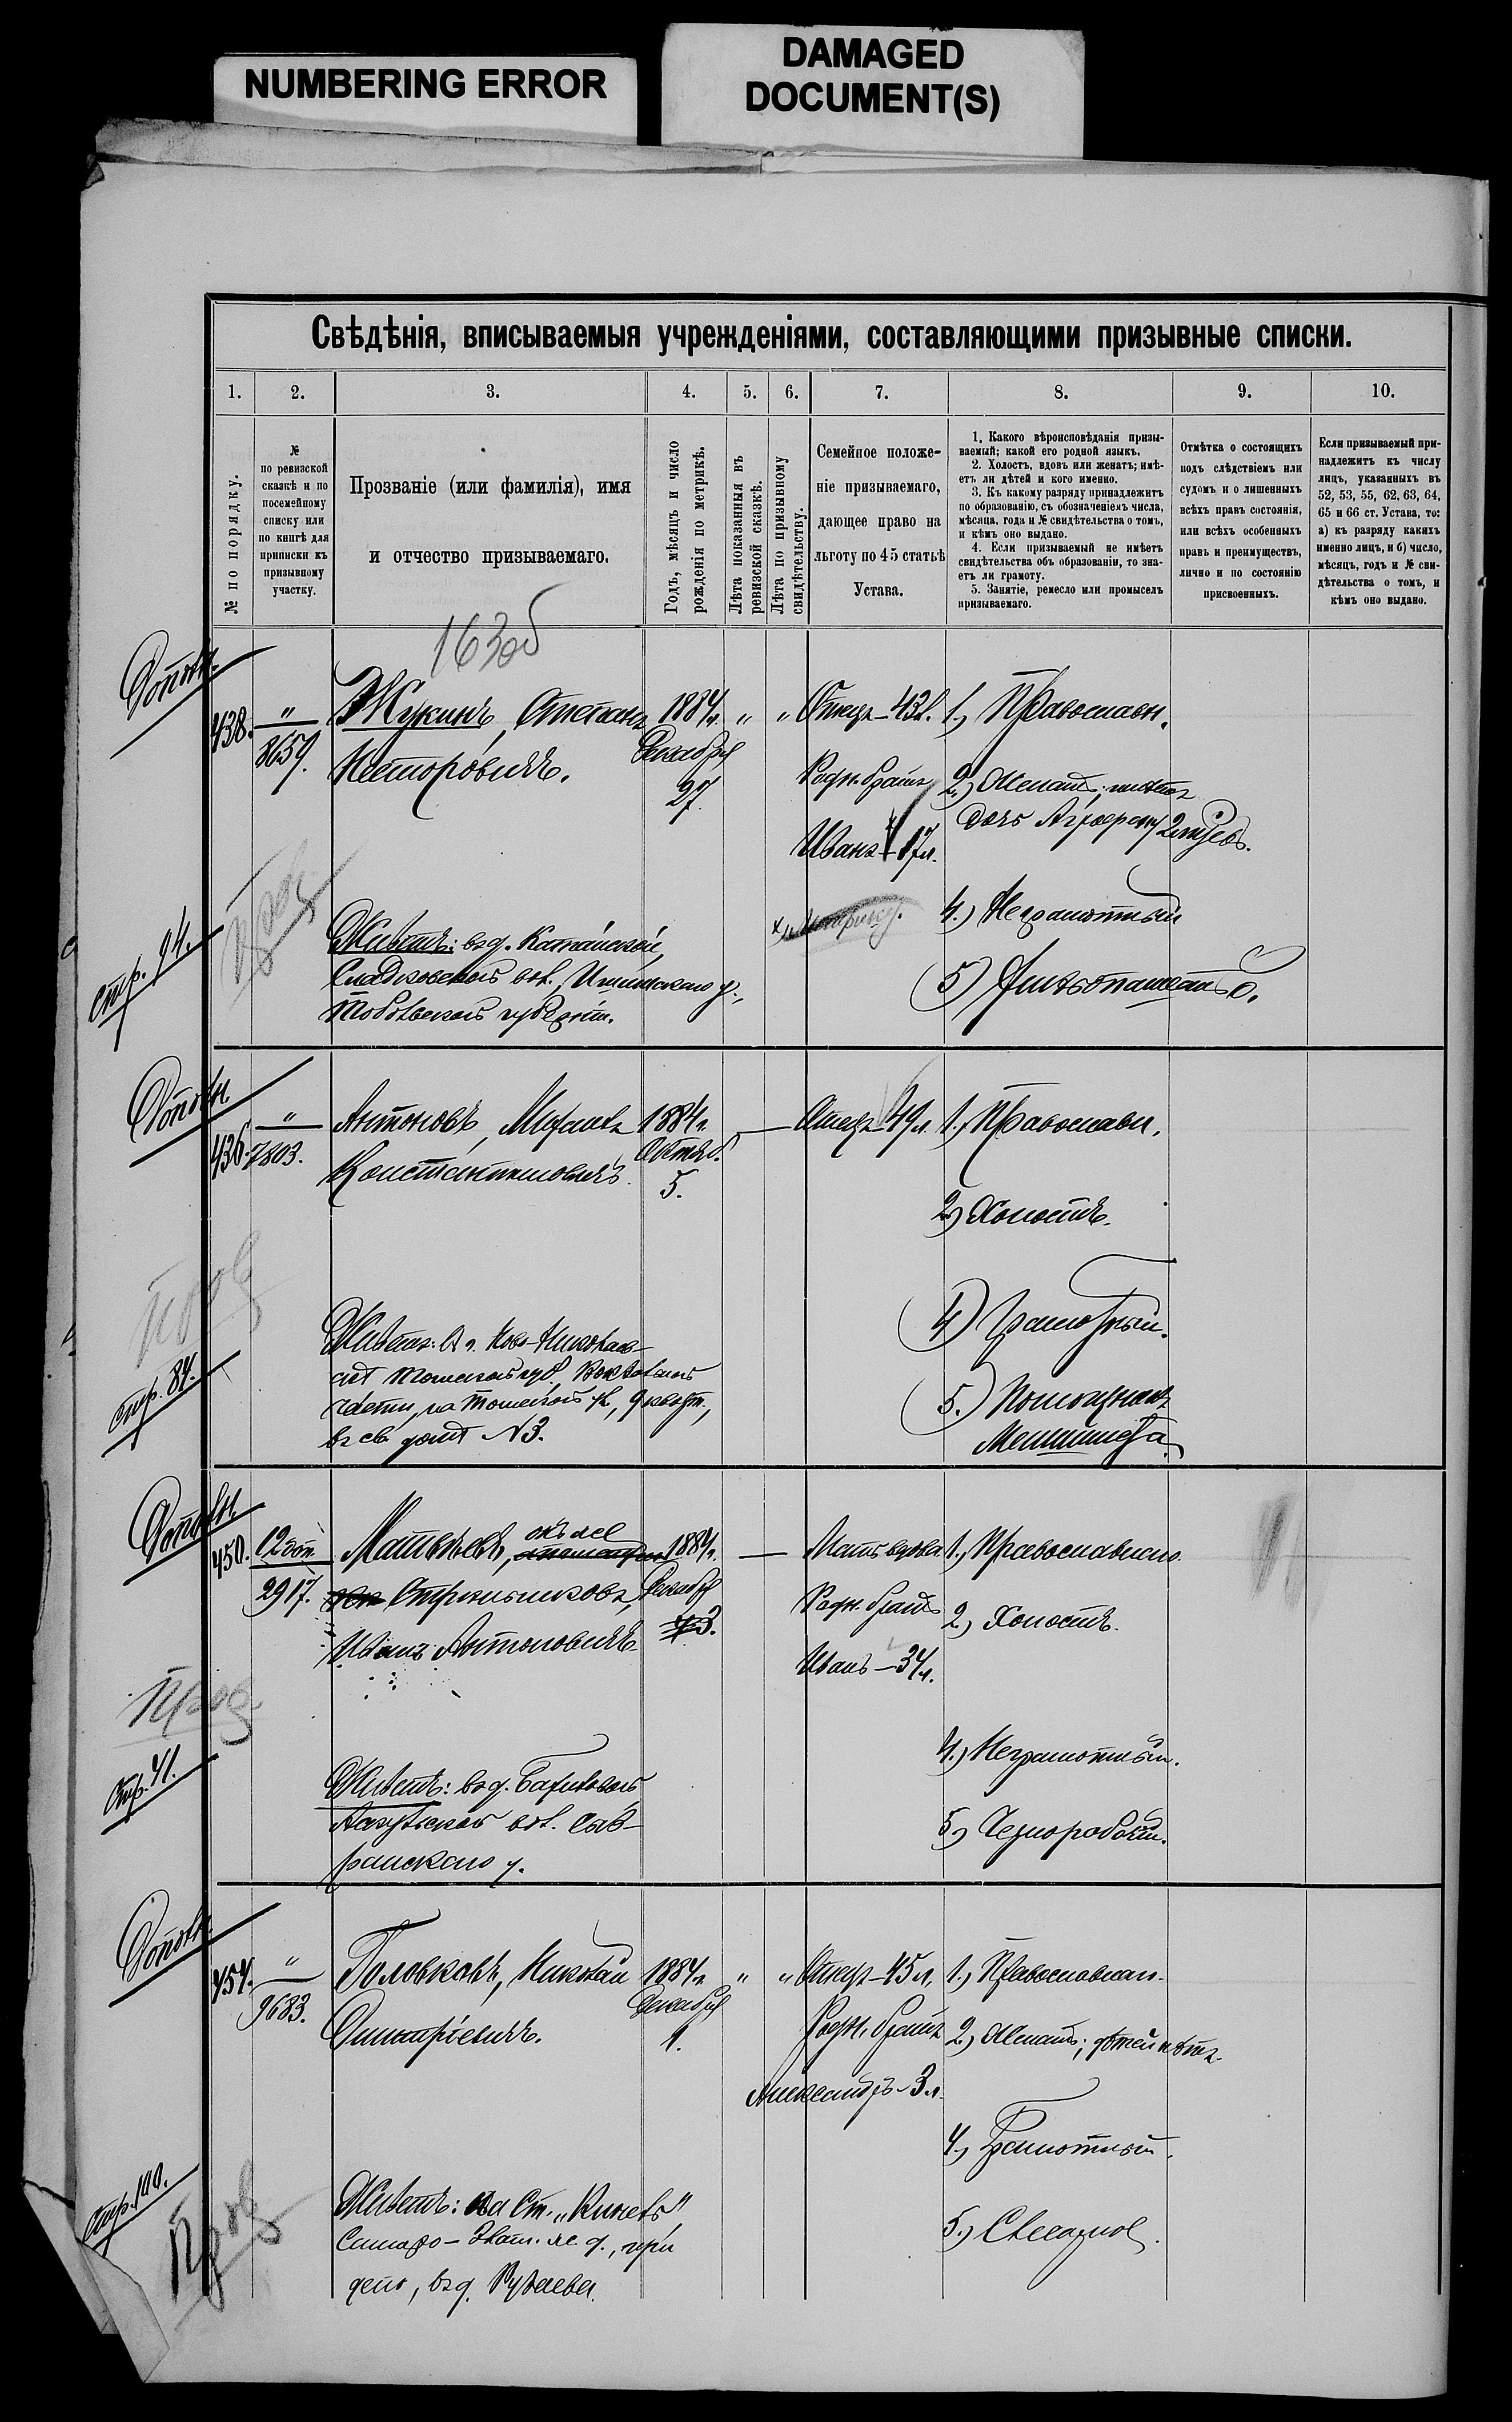 NUMBERING ERROR
DAMAGED
DOCUMENT(S)
Свѣдѣнія, вписываемыя учрежденіями, составляющими призывные списки.
1. 2. 3. 4. 5. 6. 7. 8. 9. 10.
№ по порядку.
№
по ревизской
сказкѣ и по
посемейному
списку или
по книгѣ для
приписки къ
призывному
участку.
Прозваніе (или фамилія), имя
и отчество призываемаго.
Годъ, мѣсяцъ и число
рожденія по метрикѣ.
Лѣта показанныя въ
ревизской сказкѣ.
Лѣта по призывному
свидѣтельству.
Семейное положе-
ніе призываемаго,
дающее право на
льготу по 45 статьѣ
Устава.
1. Какого вѣроисповѣданія призы-
ваемый; какой его родной языкъ.
2. Холостъ, вдовъ или женатъ; имѣ-
етъ ли дѣтей и кого именно.
3. Къ какому разряду принадлежитъ
по образованію, съ обозначеніемъ числа,
мѣсяца, года и № свидѣтельства о томъ,
и кѣмъ оно выдано.
4. Если призываемый не имѣетъ
свидѣтельства объ образованіи, то зна-
етъ ли грамоту.
5. Занятіе, ремесло или промыселъ
призываемаго.
Отмѣтка о состоящихъ
подъ слѣдствіемъ или
судомъ и о лишенныхъ
всѣхъ правъ состоянія,
или всѣхъ особенныхъ
правъ и преимуществъ,
лично и по состоянію
присвоенныхъ.
Если призываемый при-
надлежитъ къ числу
лицъ, указанныхъ въ
52, 53, 55, 62, 63, 64,
65 и 66 ст. Устава, то:
а) къ разряду какихъ
именно лицъ, и б) число,
мѣсяцъ, годъ и № сви-
дѣтельства о томъ, и
кѣмъ оно выдано.
163об
Дополн.
438.
"
3659.
Жукинъ, Степанъ
Несторовичъ.
1884 г.
Декабря
27.
" "
Отецъ - 43 л.
Родн. братъ
Иванъ - 17 л.
1.) Православн.
2.) Женатъ; имѣетъ
4.) Неграмотный
5) Хлѣбопашество.
Стр. 94.
Живетъ: въ д. Катайской,
Сладковской вол., Ишимскаго у.,
Тобольской губерніи.
Дополн.
436.
"
7803.
Антоновъ, Михаилъ
Константиновичъ.
1884 г.
Октяб.
5.
—
Отецъ - 49 л.
1.) Православн.
2.) Холостъ.
4) Грамотный.
5.) Помощникъ
Машиниста
Стр. 84.
Живетъ: въ г. Ново-Николаев-
скѣ Томской губ., Вокзальной
части, на Томской ул., 9 кварт.,
въ св. домѣ №3.
Дополн.
450.
12 доп.
2917.
Матвѣевъ, онъ же
Стрельниковъ,
Иванъ Антоновичъ
1884 г.
Декабря
3.
—
Мать вдова
Родн. братъ
Иванъ - 34 л.
1.) Православнаго.
2.) Холостъ.
4.) Неграмотный.
5.) Чернорабочій.
Пров.
Стр. 41.
Дополн.
454.
"
9683.
Головковъ, Николай
Дмитріевичъ.
1884 г.
Декабря
1.
" "
Отецъ - 45 л.
Родн. братъ
Александръ - 3 л.
1.) Православнаго.
2.) Женатъ; дѣтей нѣтъ.
4.) Грамотный.
5.) Слесарное.
Стр. 100.
Пров
Живетъ: на Ст. "Кинель"
Самаро-Злат. ж. д., при
депо, въ д.